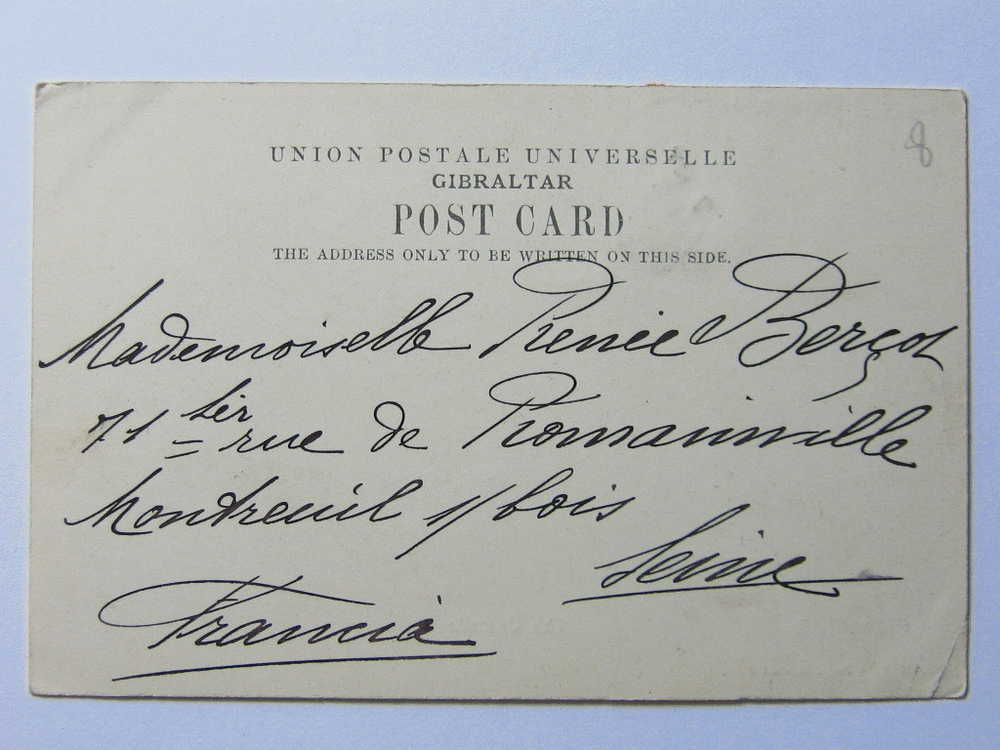 8
UNION POSTALE UNIVERSELLE
GIBRALTAR
POST CARD
THE ADDRESS ONLY TO BE WRITTEN ON THIS SIDE.
Mademoiselle Renée Berçot
71 ter rue de Romainville
Montreuil s/ bois
Seine
Francia